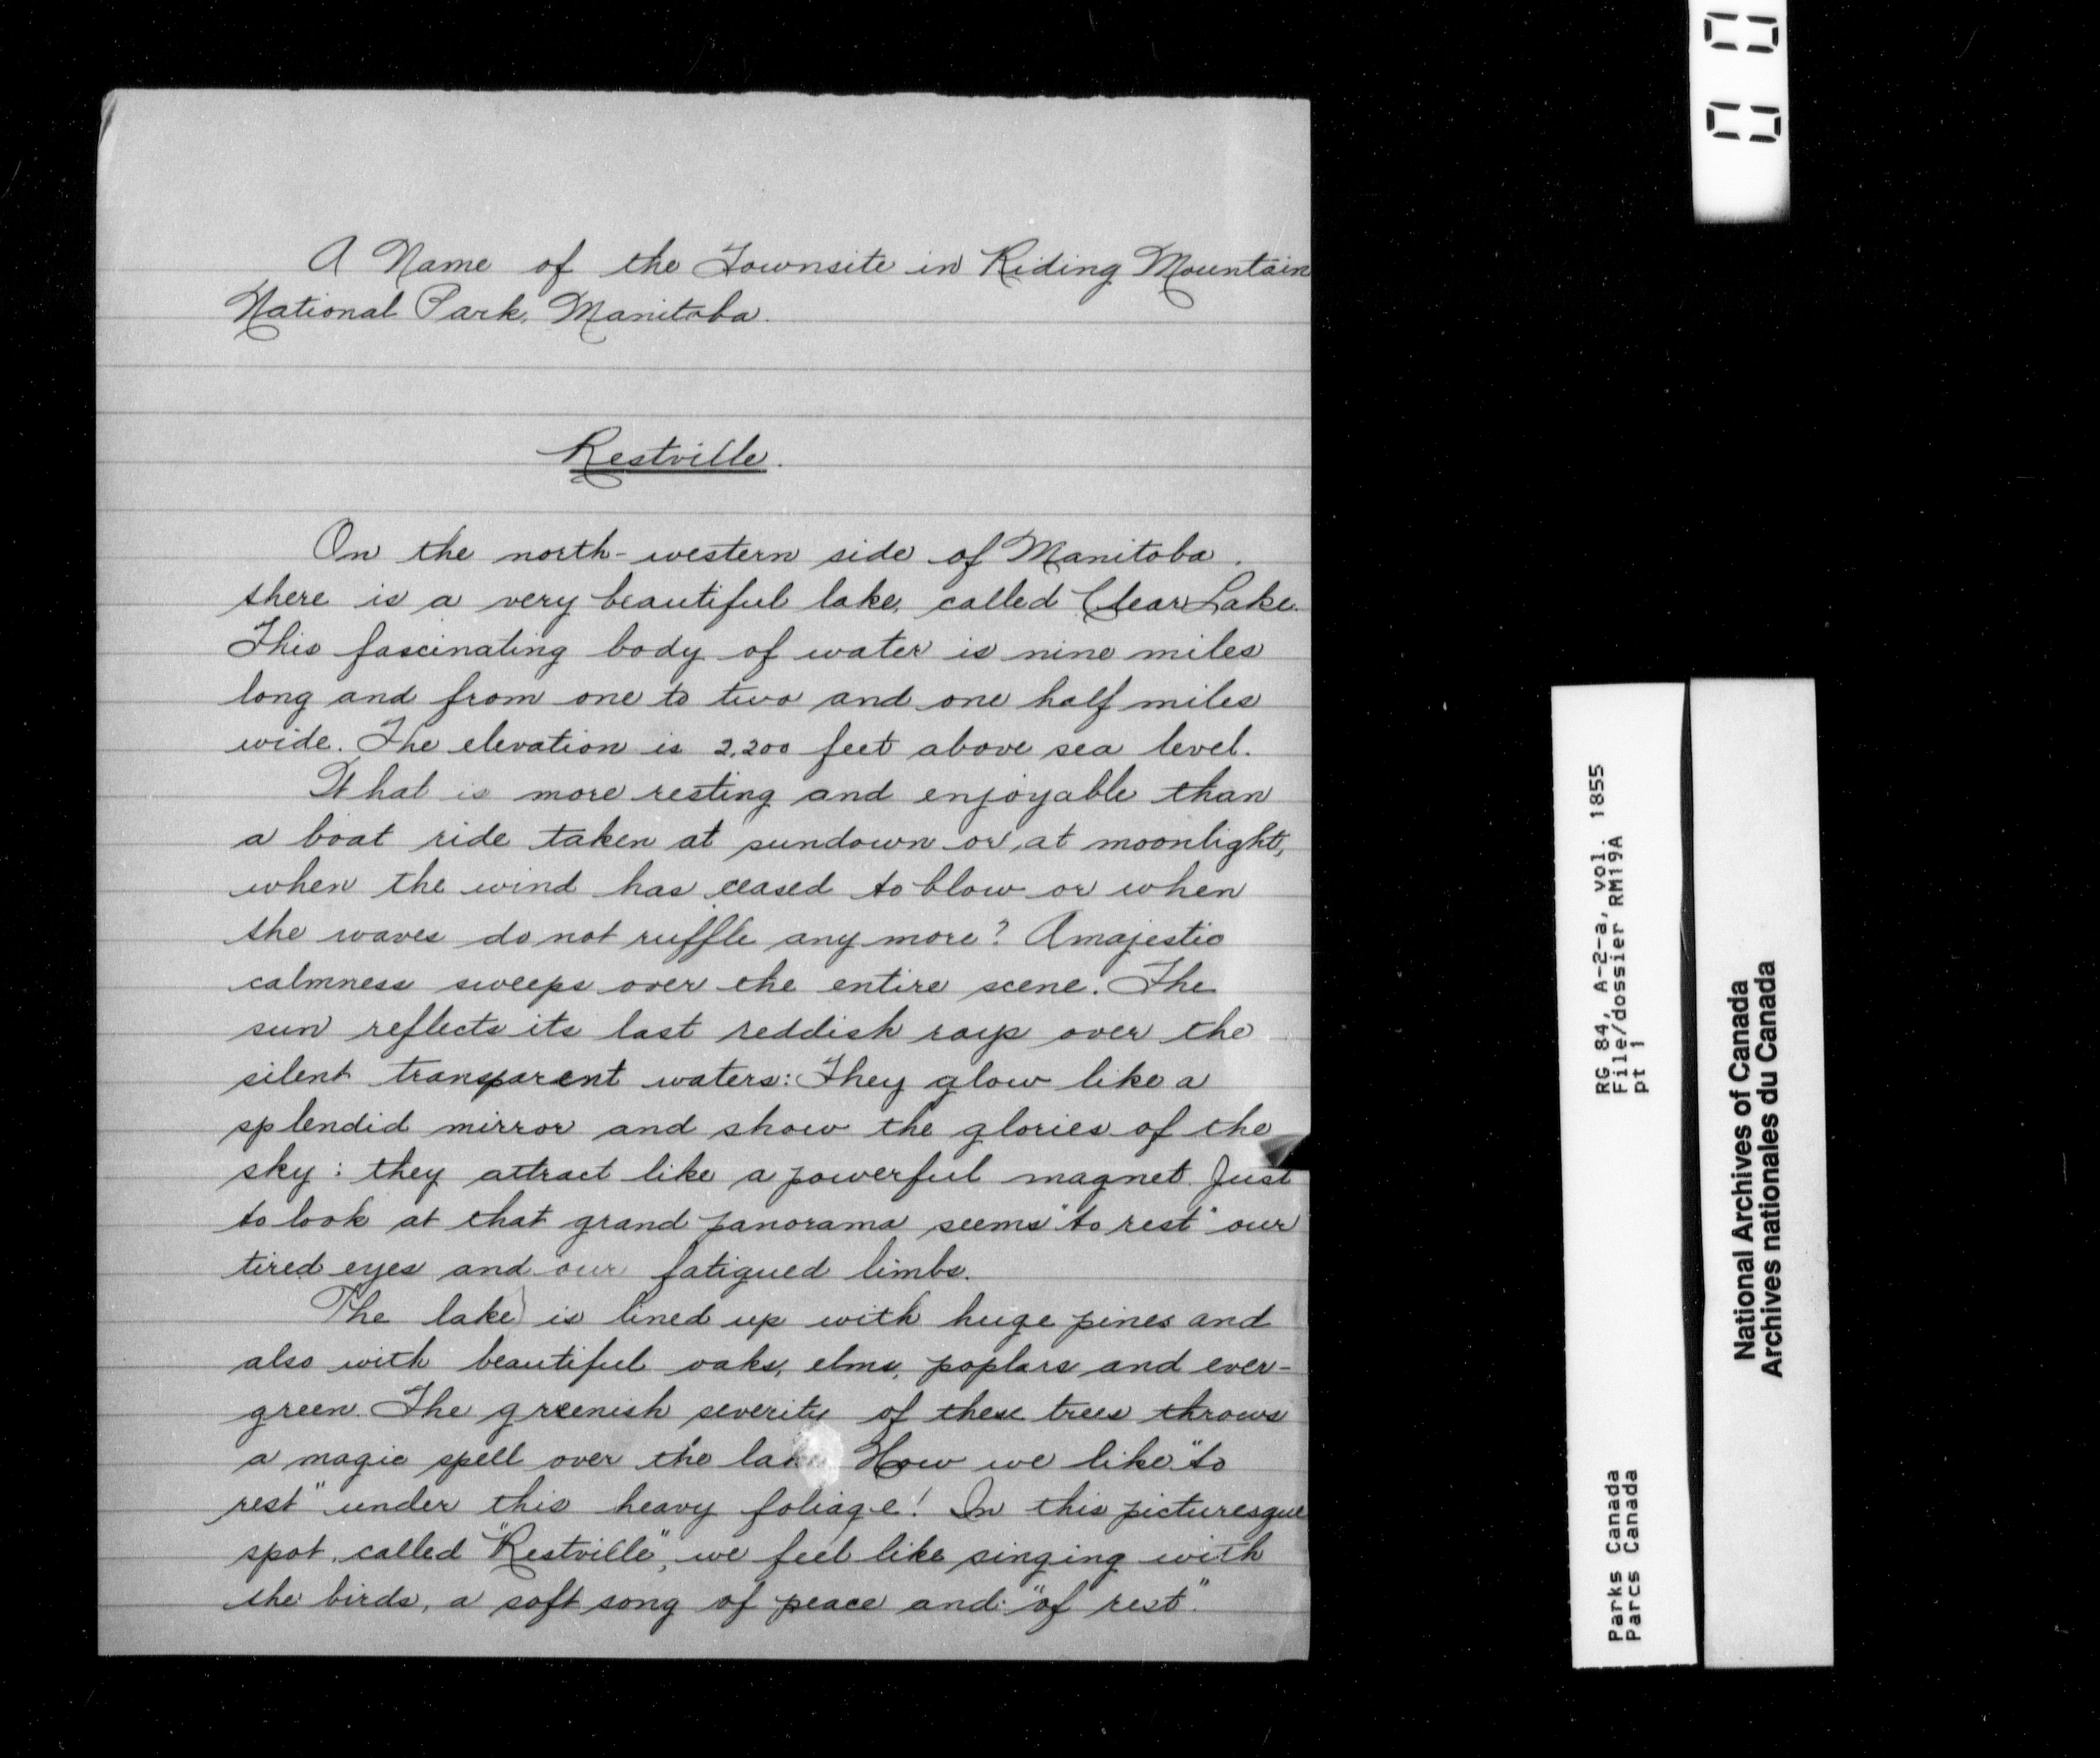 A Name of the Townsite in Riding Mountain
National Park, Manitoba.
Restville.
On the north-western side of Manitoba,
there is a very beautiful lake, called Clear Lake.
This fascinating body of water is nine miles
long and from one to two and one half miles
wide. The elevation is 2,200 feet above sea level.
What is more resting and enjoyable than
a boat ride taken at sundown or at moonlight,
when the wind has ceased to blow or when
the waves do not ruffle any more? A majestic
calmness sweeps over the entire scene. The
sun reflects its last reddish rays over the
silent transparent waters: They glow like a
splendid mirror and show the glories of the
sky: they attract like a powerful magnet. Just
to look at that grand panorama seems "to rest" our
tired eyes and our fatigued limbs.
The lake is lined up with huge pines and
also with beautiful oaks, elms, poplars and ever-
green. The greenish severity of these trees throws
a magic spell over the lake How we like "to
rest" under this heavy foliage! In this picturesque
spot, called "Restville", we feel like singing with
the birds, a soft song of peace and "of rest".
RG 84, A-2-a, vol. 1855
File/dossier RM19A
pt 1
Parks Canada
Parcs Canada
National Archives of Canada
Archives nationales du Canada